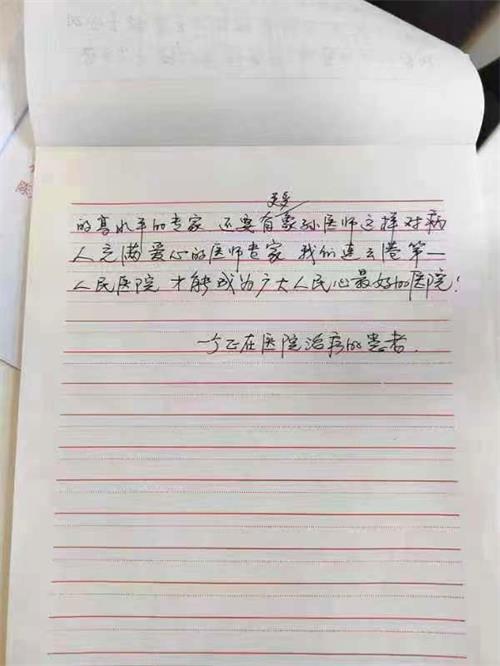 的高水平的专家 还要有象孙医师这样对病
人充满爱心的医师专家 我们连云港第一
人民医院 才能成为广大人民心最好的医院!
一与正在医院治疗的患者.